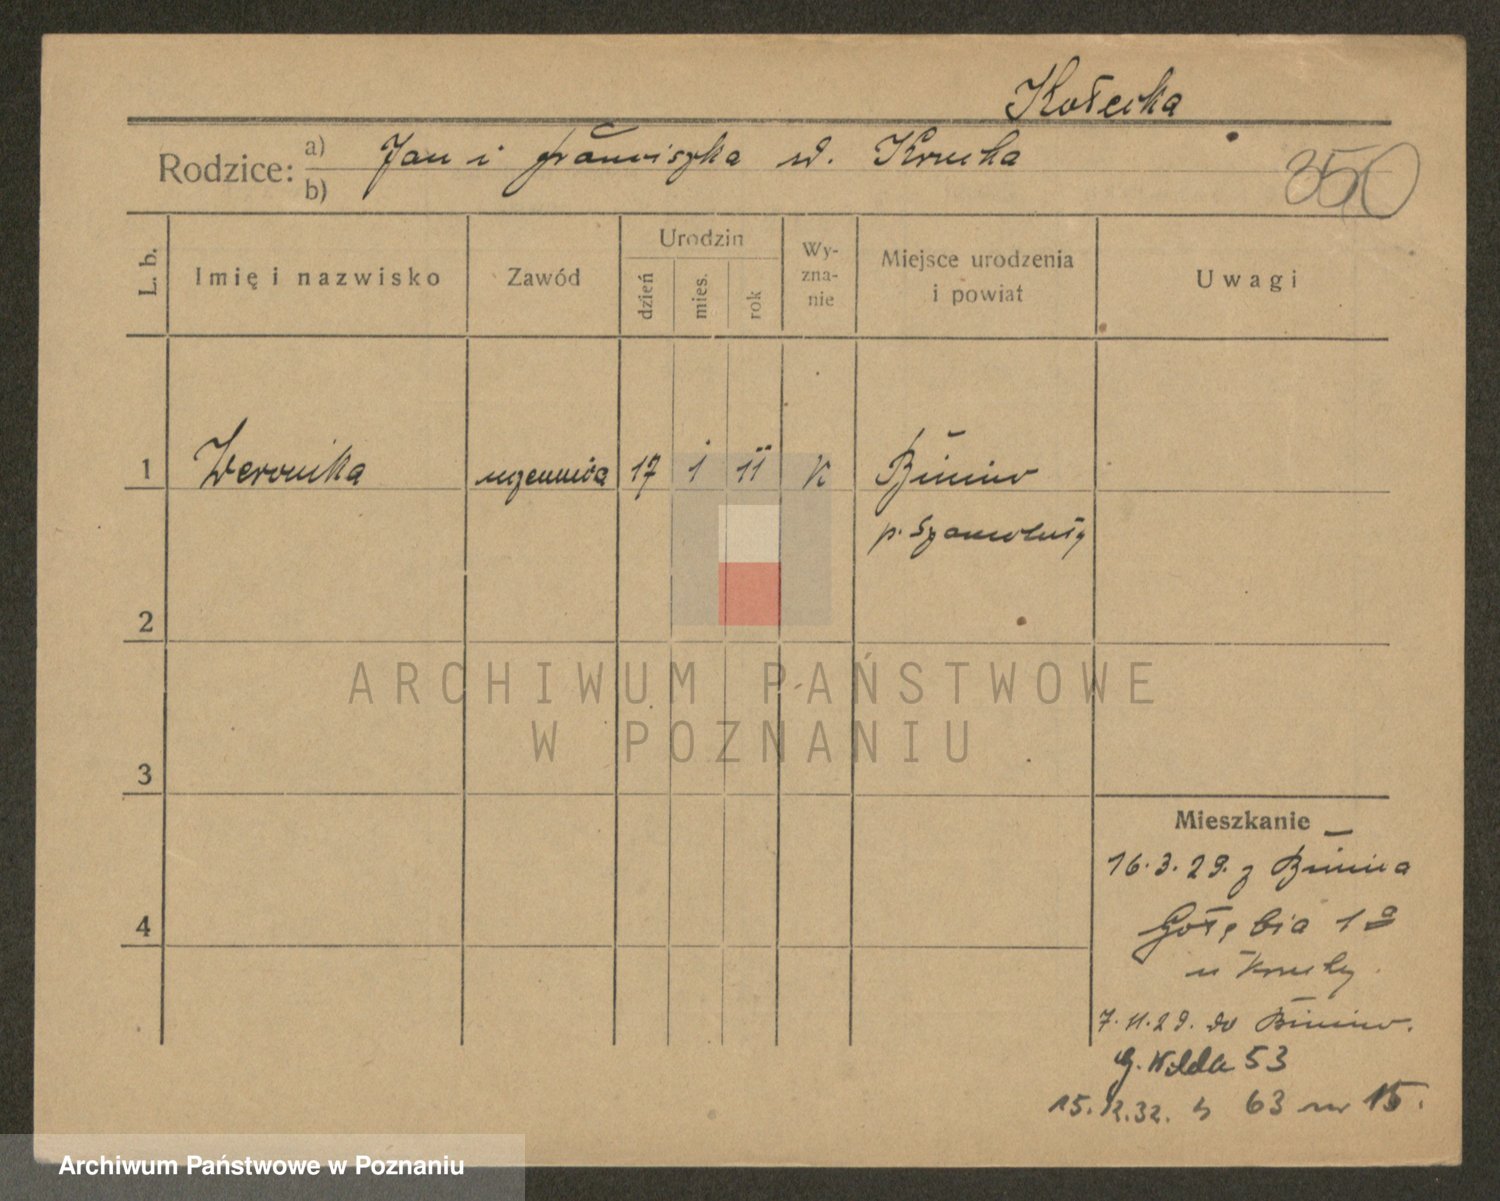 Kołecka
Rodzice: a) Jan i Franciszka
b)
350
L. b. Imię i nazwisko Zawód Urodzin dzień mies. rok Wy-zna-nie Miejsce urodzenia i powiat Uwagi
1 Weronika uczennica 17 1 11 K
p. Szamotuły
2
ARCHIWUM PAŃSTWOWE
W POZNANIU
3
Mieszkanie
16.3.29. z
4 Gołębia 1a
u Kruchy
7.11.29. do
G. Wilda 53
15.12.32. 63 15.
Archiwum Państwowe w Poznaniu